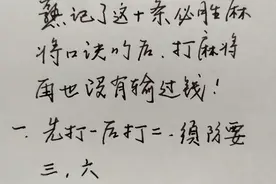 熟记了这十条必胜麻
将口诀的后.打麻将
再也没有输过钱！
一.先打一后打二.须防要
三、六